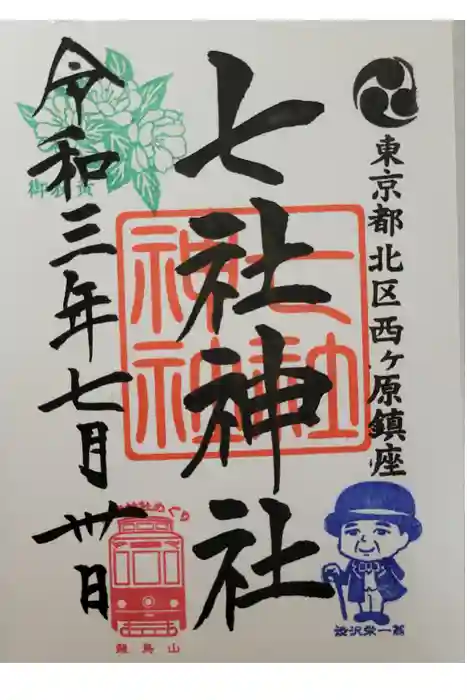 東京都北区西ヶ原鎮座
七社神社
七社神社
令和三年七月卅日
渋沢栄一翁
飛鳥山